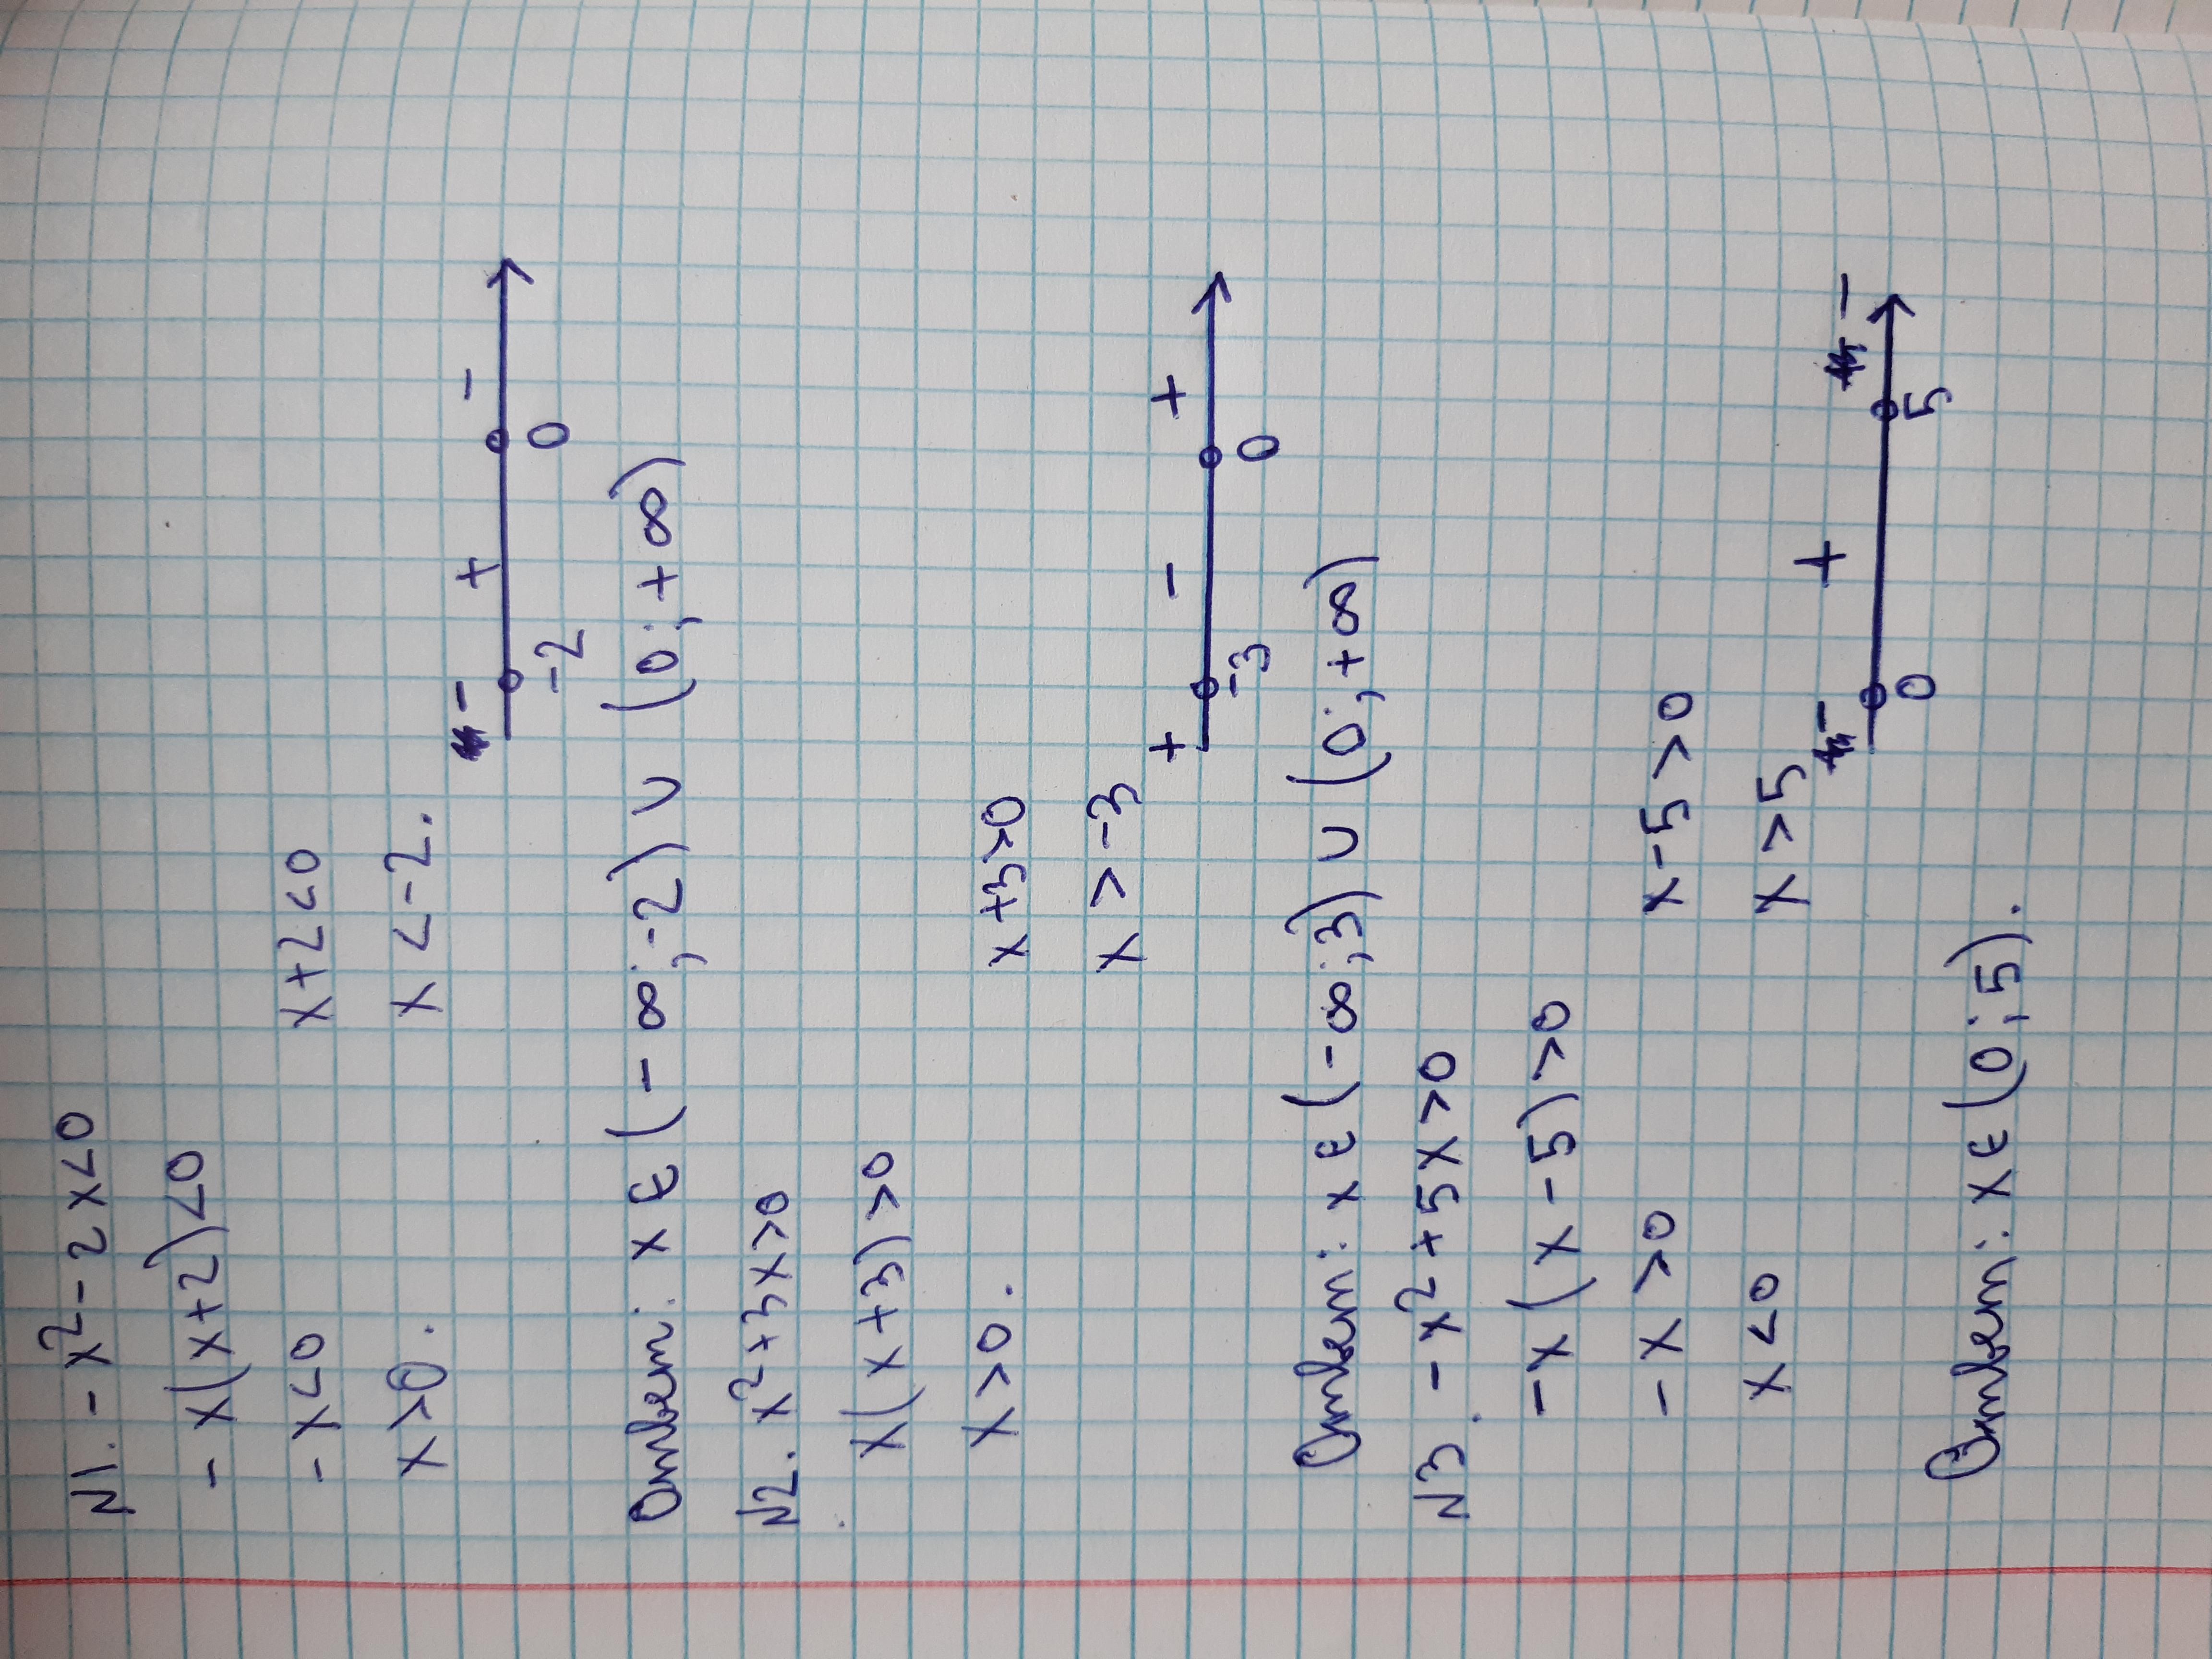 N1. - x² - 2x<0
- x(x+2)<0
- x<0 x+2<0
x>0. x<-2.
- + -
-2 0
Ответ: x ∈ (-∞;-2) ∪ (0;+∞)
N2. x²+3x>0
x(x+3)>0
x>0. x+3>0
x>-3
+ - +
-3 0
Ответ: x ∈ (-∞;3) ∪ (0;+∞)
N3. - x²+5x>0
-x(x-5)>0
-x>0 x-5>0
x<0 x>5
- + -
0 5
Ответ: x ∈ (0;5).